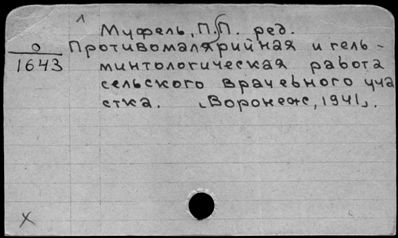 Муфель, П.П. ред.
О
1643
Противомалярийная и гель-
минтологическая работа
сельского врачебного уча
стка. [Воронеж, 1941].
X